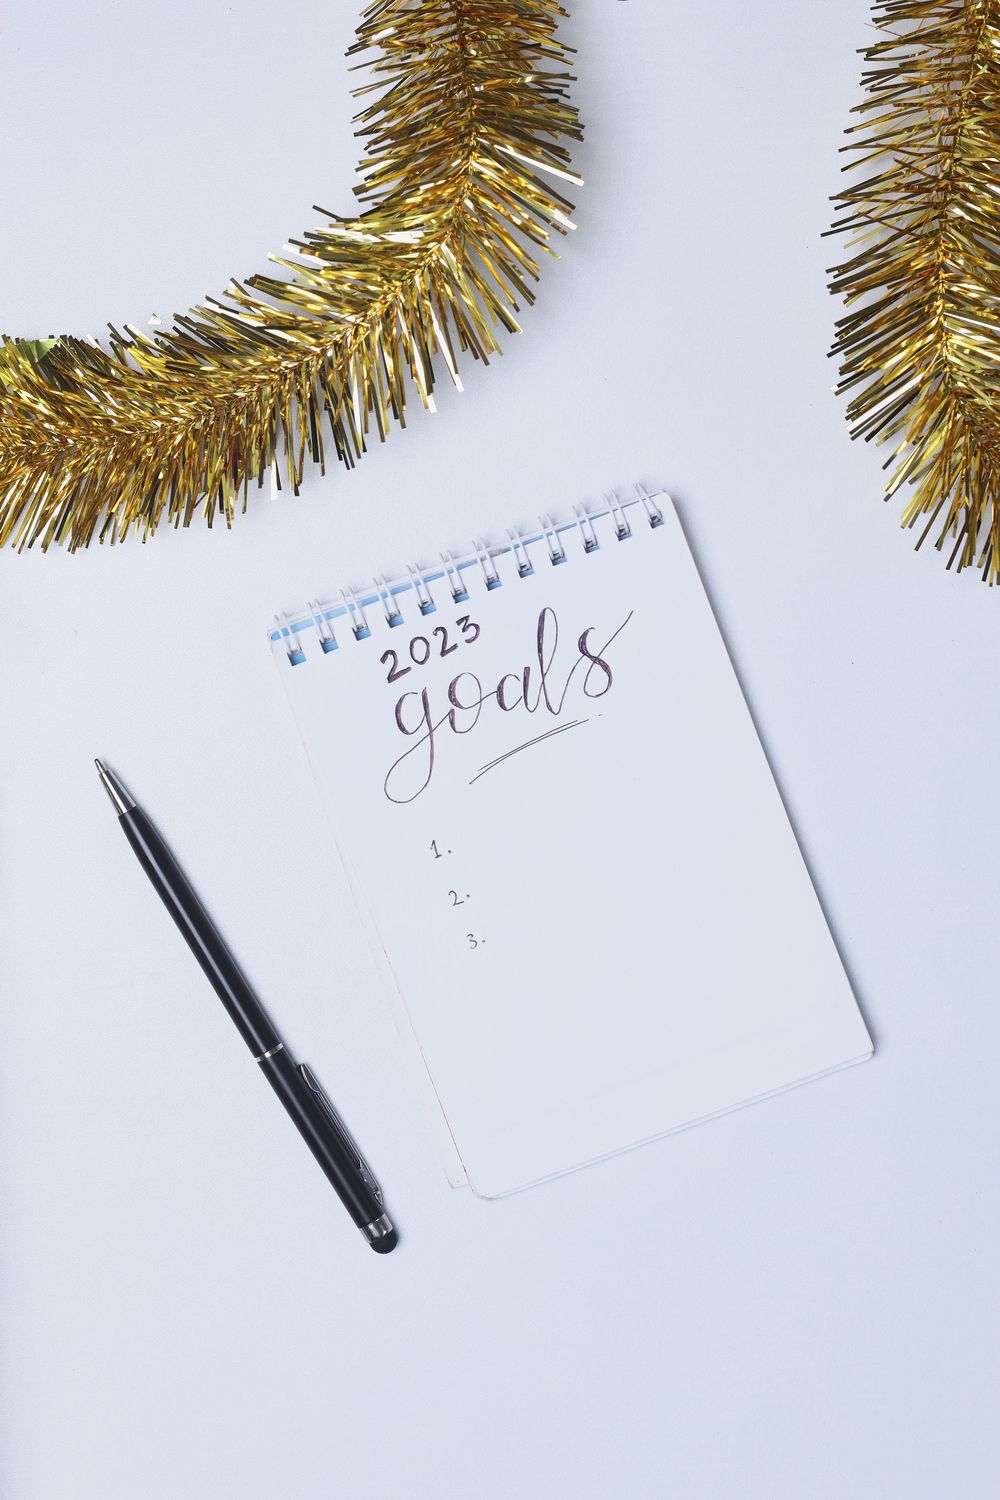 2023
goals
1.
2.
3.